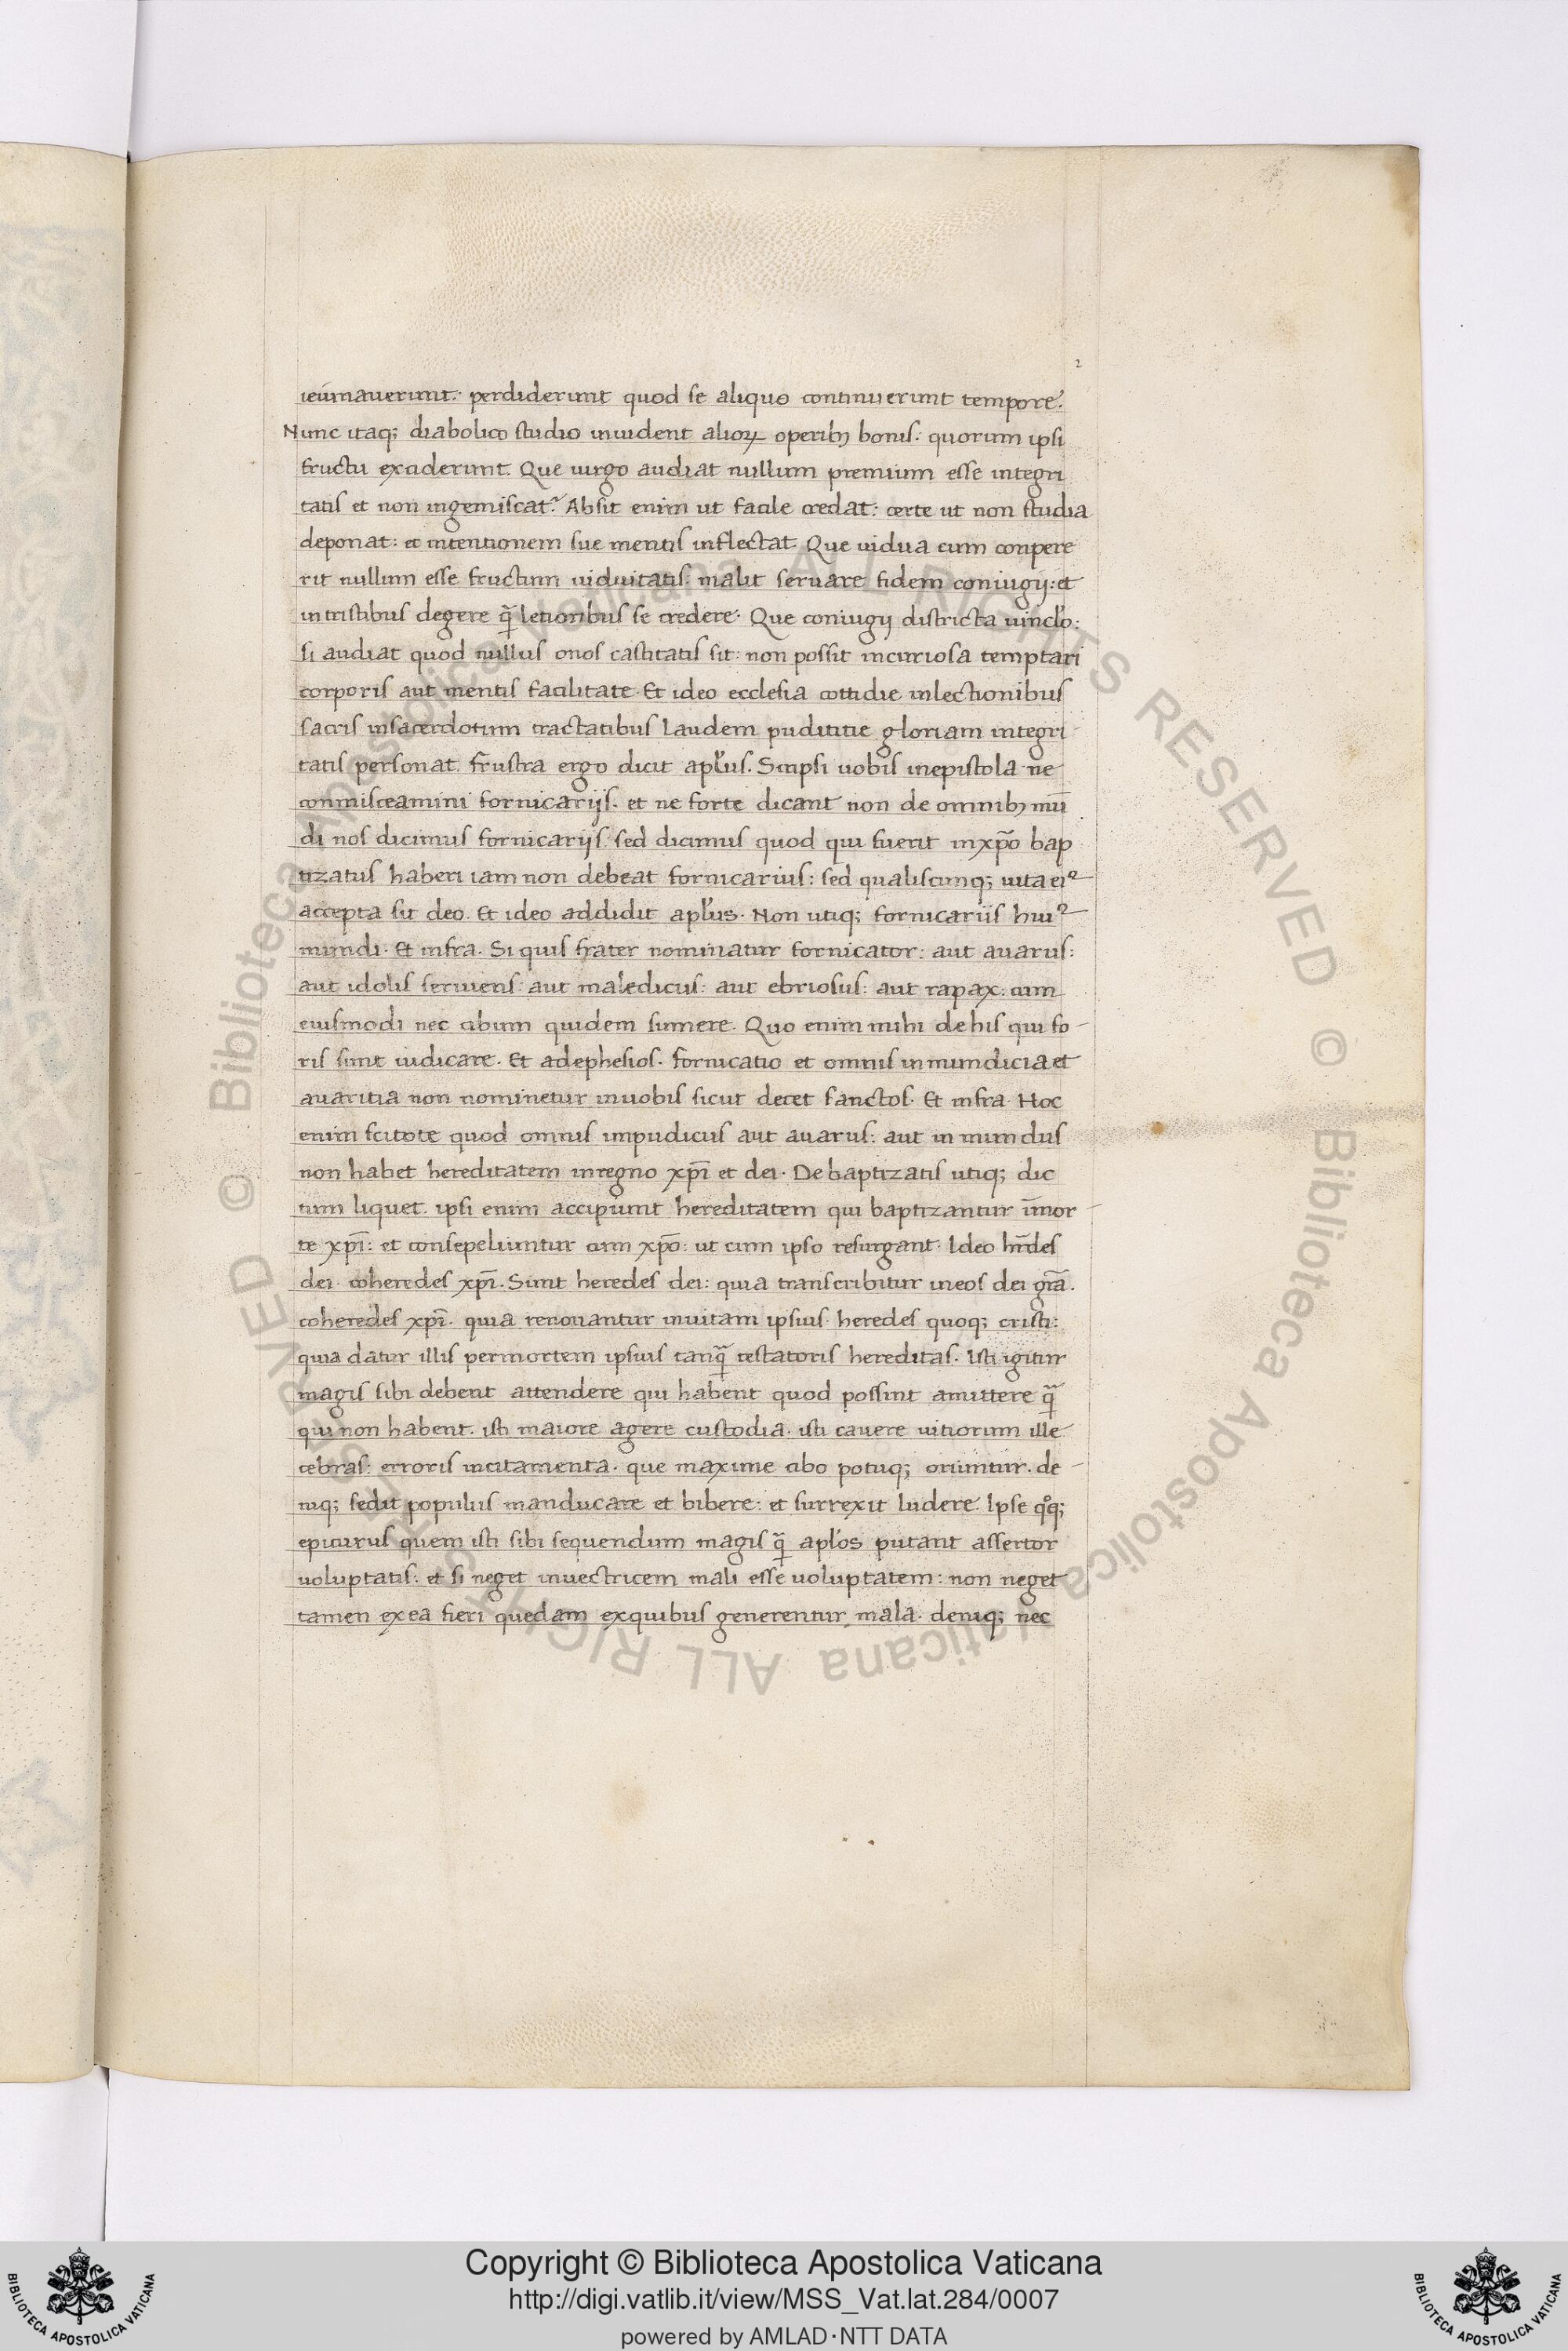 2
ieiunaverunt. perdiderunt quod se aliquo continuerunt tempore.
Nunc itaq; diabolico studio inuident alioꝝ operibꝫ bonis: quorum ipsi
fructu exciderunt. Que uirgo audiat nullum premium esse integri
tatis et non ingemiscat? Absit enim ut facile credat: certe ut non studia
deponat: et intentionem sue mentis inflectat. Que uidua cum conpere
rit nullum esse fructum uiduitatis. malit seruare fidem coniugij: et
in tristibus degere q̃ letioribus se credere. Que coniugij districta uinclo:
si audiat quod nullus onos castitatis sit: non possit incuriosa temptari
corporis aut mentis facilitate. Et ideo ecclesia cottidie inlectionibus
sacris insacerdotum tractatibus laudem puditítie gloriam integri
tatis personat. frustra ergo dicit apl̓us. Scripsi uobis inepistola ne
conmisceamini fornicarijs. et ne forte dicant non de omnibꝫ mū
di nos dicimus fornicarijs. sed dicimus quod qui fuerit inxp̃o bap
tizatus haberi iam non debeat fornicarius: sed qualiscunq; uita eiꝰ
accepta sit deo. Et ideo addidit apl̓us. Non utiq; fornicariis huiꝰ
mundi. Et infra. Si quis frater nominatur fornicator: aut auarus:
aut idolis seruiens: aut maledicus: aut ebriosus: aut rapax. cum
eiusmodi nec cibum quidem sumere. Quo enim mihi de his qui fo-
ris sunt iudicare. Et adephesios. fornicatio et omnis inmundicia et
auaritia non nominetur inuobis sicut decet sanctos. Et infra. Hoc
enim scitote quod omnis impudicus aut auarus: aut in mundus
non habet hereditatem inregno xp̃i et dei. De baptizatis utiq; dic
tum liquet. ipsi enim accipiunt hereditatem qui baptizantur ī̄mor-
te xp̃i: et consepeliuntur cum xp̃o: ut cum ipso resurgant. Ideo hr̄des
dei. coheredes xp̃i. Sunt heredes dei: quia transcribitur ineos dei gr̃a.
coheredes xp̃i. quia renouantur inuitam ipsius. heredes quoq; cristi:
quia datur illis permortem ipsius tanq̃ testatoris hereditas. Isti igitur
magis sibi debent attendere qui habent quod possint amittere q̃
qui non habent. isti maiore agere custodia. isti cauere uitiorum ille
cebras: erroris incitamenta. que maxime cibo potuq; oriuntur. de-
niq; sedit populus manducare et bibere: et surrexit ludere. Ipse qͦq;
epicurus quem isti sibi sequendum magis q̃ apl̓os putant assertor
uoluptatis: et si neget inuectricem mali esse uoluptatem: non neget
tamen exea fieri quedam exquibus generentur mala. deniq; nec
© Biblioteca Apostolica Vaticana ALL RIGHTS RESERVED © Biblioteca Apostolica Vaticana ALL RIGHTS RESERVED
Copyright © Biblioteca Apostolica Vaticana
http://digi.vatlib.it/view/MSS_Vat.lat.284/0007
powered by AMLAD·NTT DATA
BIBLIOTECA APOSTOLICA VATICANA
BIBLIOTECA APOSTOLICA VATICANA